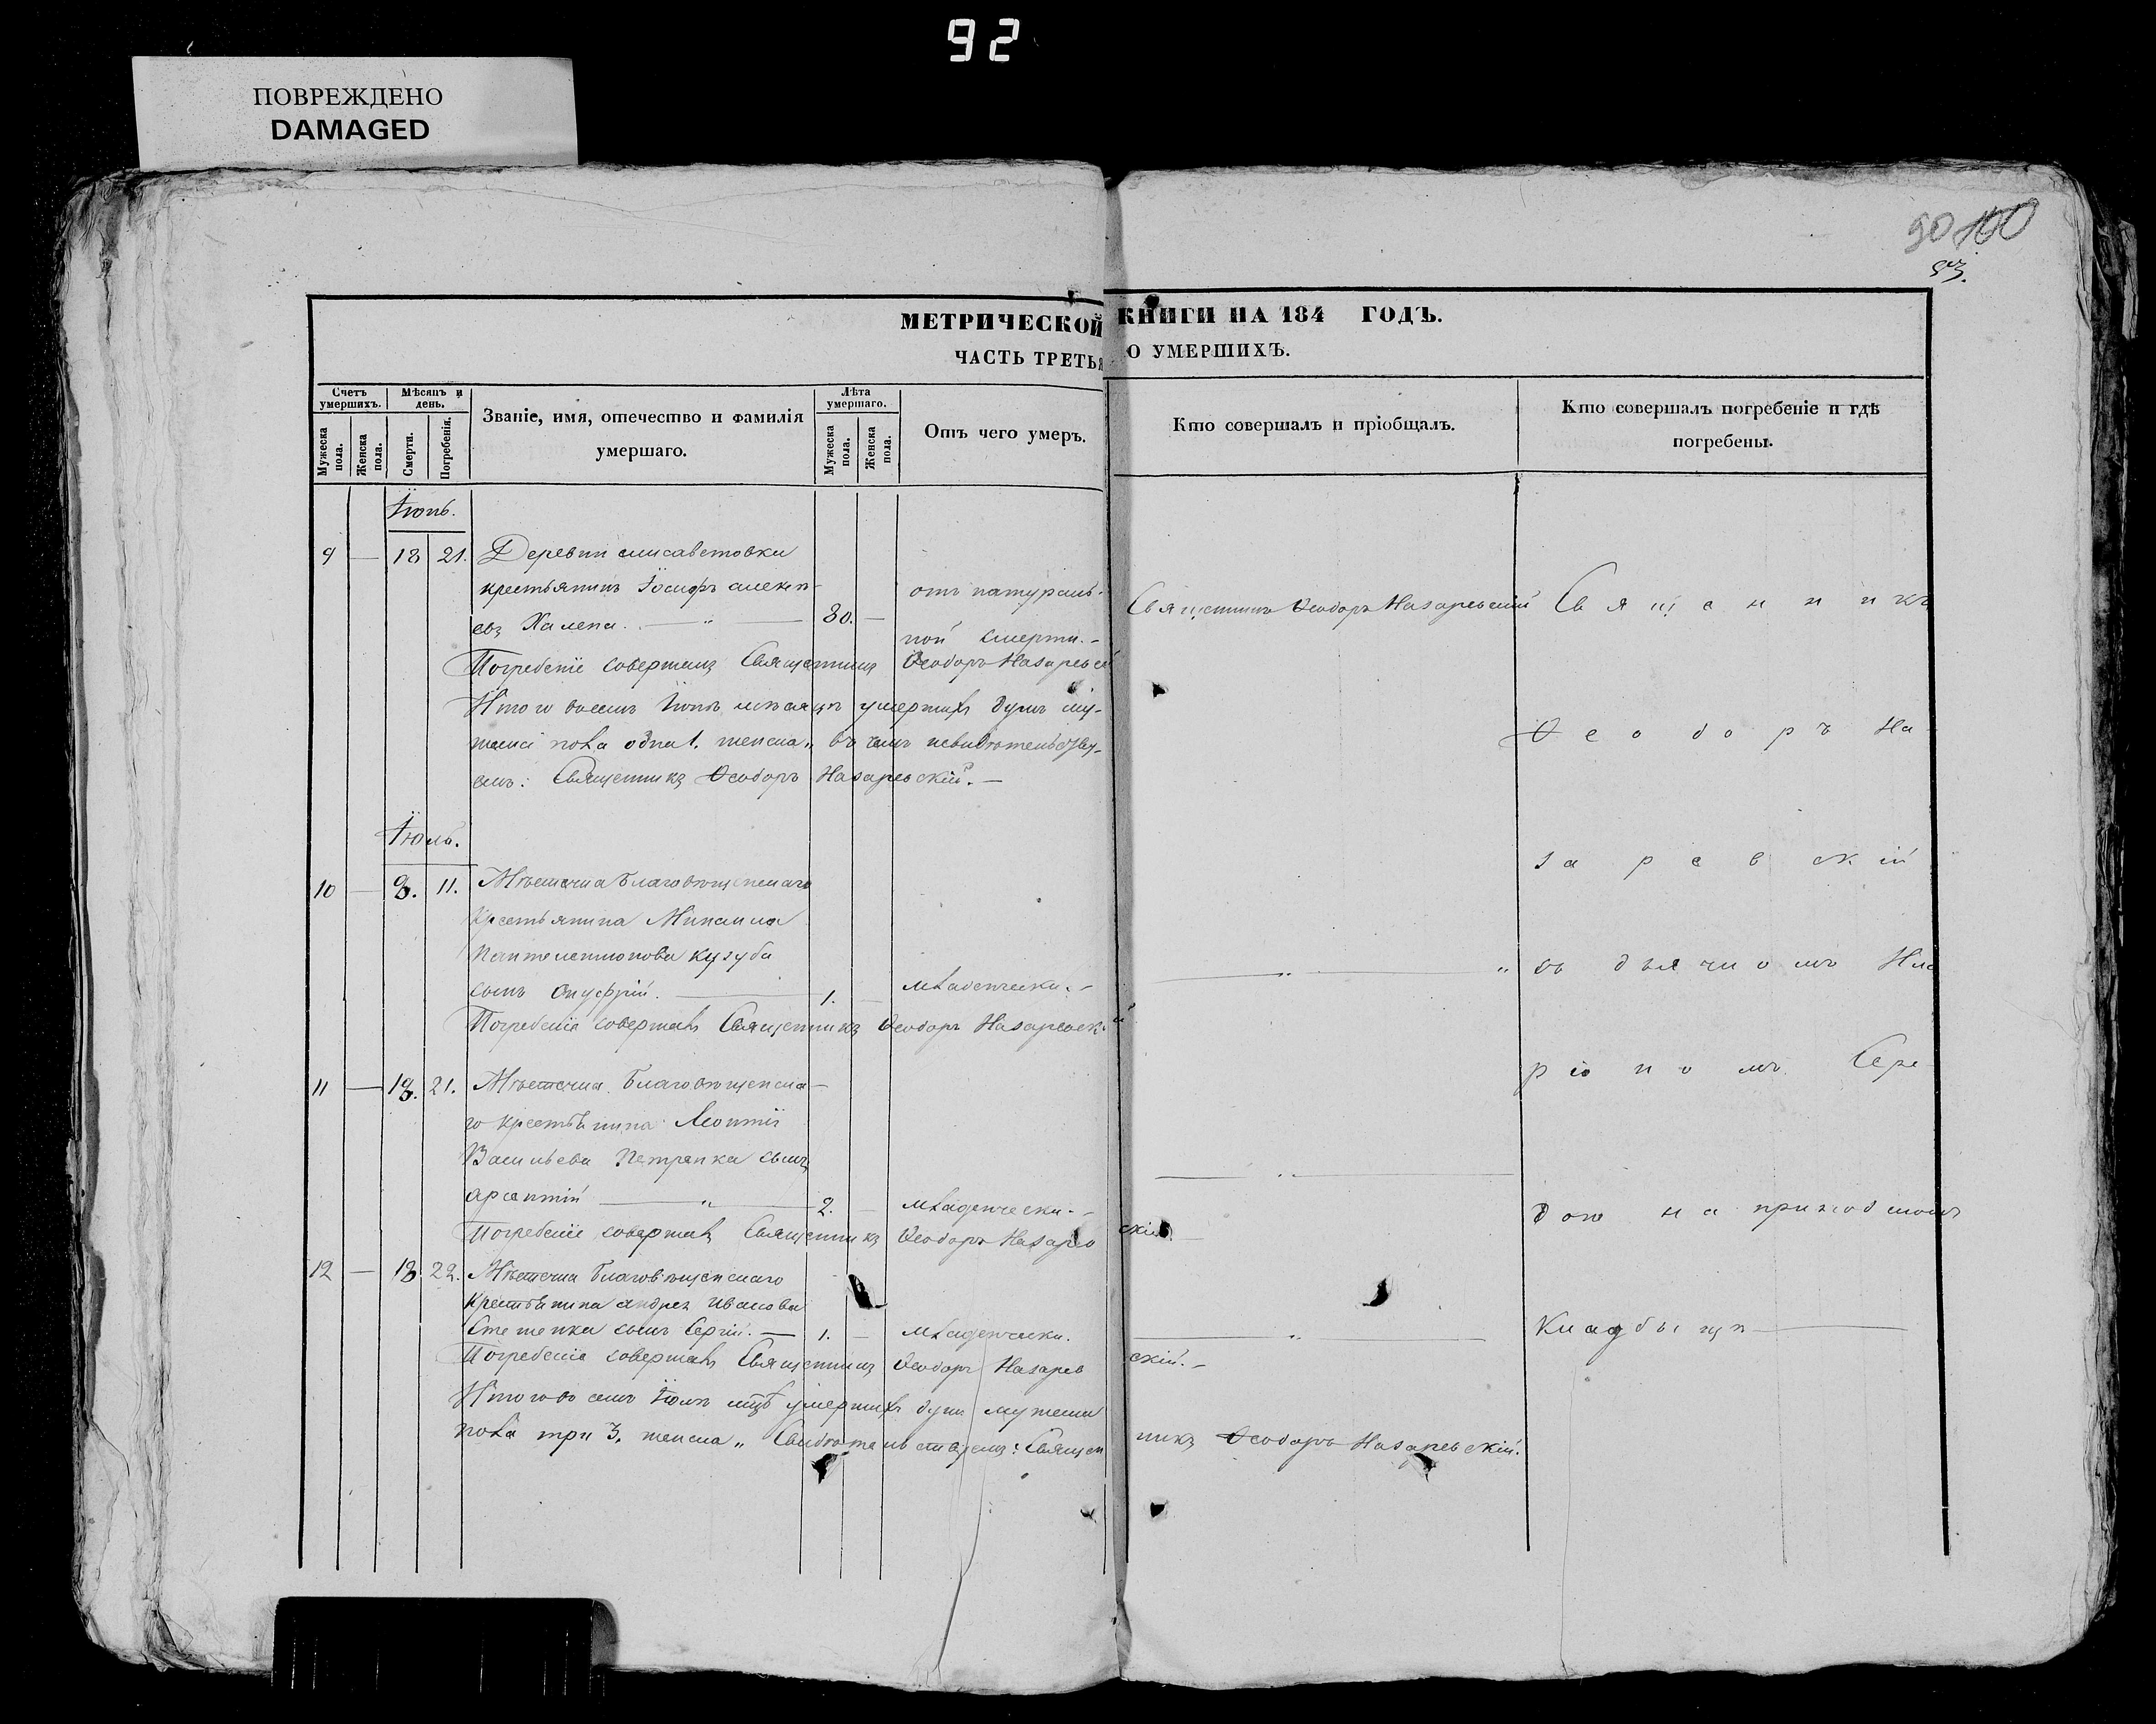 92
ПОВРЕЖДЕНО
DAMAGED
90 100
93.
МЕТРИЧЕСКОЙ КНИГИ НА 184 ГОДЪ.
ЧАСТЬ ТРЕТЬЯ О УМЕРШИХЪ.
Счетъ умершихъ.
Мѣсяцъ и день.
Званіе, имя, отечество и фамилія умершаго.
Лѣта умершаго.
Отъ чего умеръ.
Кто совершалъ и пріобщалъ.
Кто совершалъ погребеніе и гдѣ погребены.
Мужеска пола.
Женска пола.
Смерти.
Погребенія.
Мужеска пола.
Женска пола.
Іюнь.
9 — 18 21. Деревни елисаветовки
крестьянинъ Іосифъ алекѣ-
евъ Халепа. — " — 80. —
отъ натураль-
ной смерти. —
Священникъ Ѳеодоръ Назаревскій
Священникъ
Погребеніе совершалъ Священникъ Ѳеодоръ Назаревскій
Итого всемъ Іюнѣ мѣсяцѣ умершихъ душъ му-
жеска пола одна 1. женска „ въ чемъ
емъ: Священникъ Ѳеодоръ Назаревскій. —
Ѳеодоръ На
Іюль.
заревскій
10 — 8. 11. Мѣстечка Благовѣщенскаго
Крестьянина Михаила
Пантелеимонова кузуба
сынъ Онуфрій. — 1. — младенчески. —
— „ — „
съ дьячкомъ Ила
Погребеніе совершалъ Священникъ Ѳеодоръ Назаревскій
ріономъ Сере
11 — 18. 21. Мѣстечка Благовѣщенска-
го крестьянина Леонтія
Васильева Петренка сынъ
арсентій — „ — 2. — младенчески. —
— „ —
дою на приходскомъ
Погребеніе совершалъ Священникъ Ѳеодоръ Назаревскій. —
12 — 18. 22. Мѣстечка Благовѣщенскаго
Крестьянина андрея иванова
сынъ Сергій. — 1. — младенчески.
— „ —
Кладбищѣ —
Погребеніе совершалъ Священникъ Ѳеодоръ Назаревскій. —
Итого во семъ Іюлѣ мцѣ умершихъ душъ мужеска
пола три 3, женска „ Свидѣтельствуемъ: Священникъ Ѳеодоръ Назаревскій.